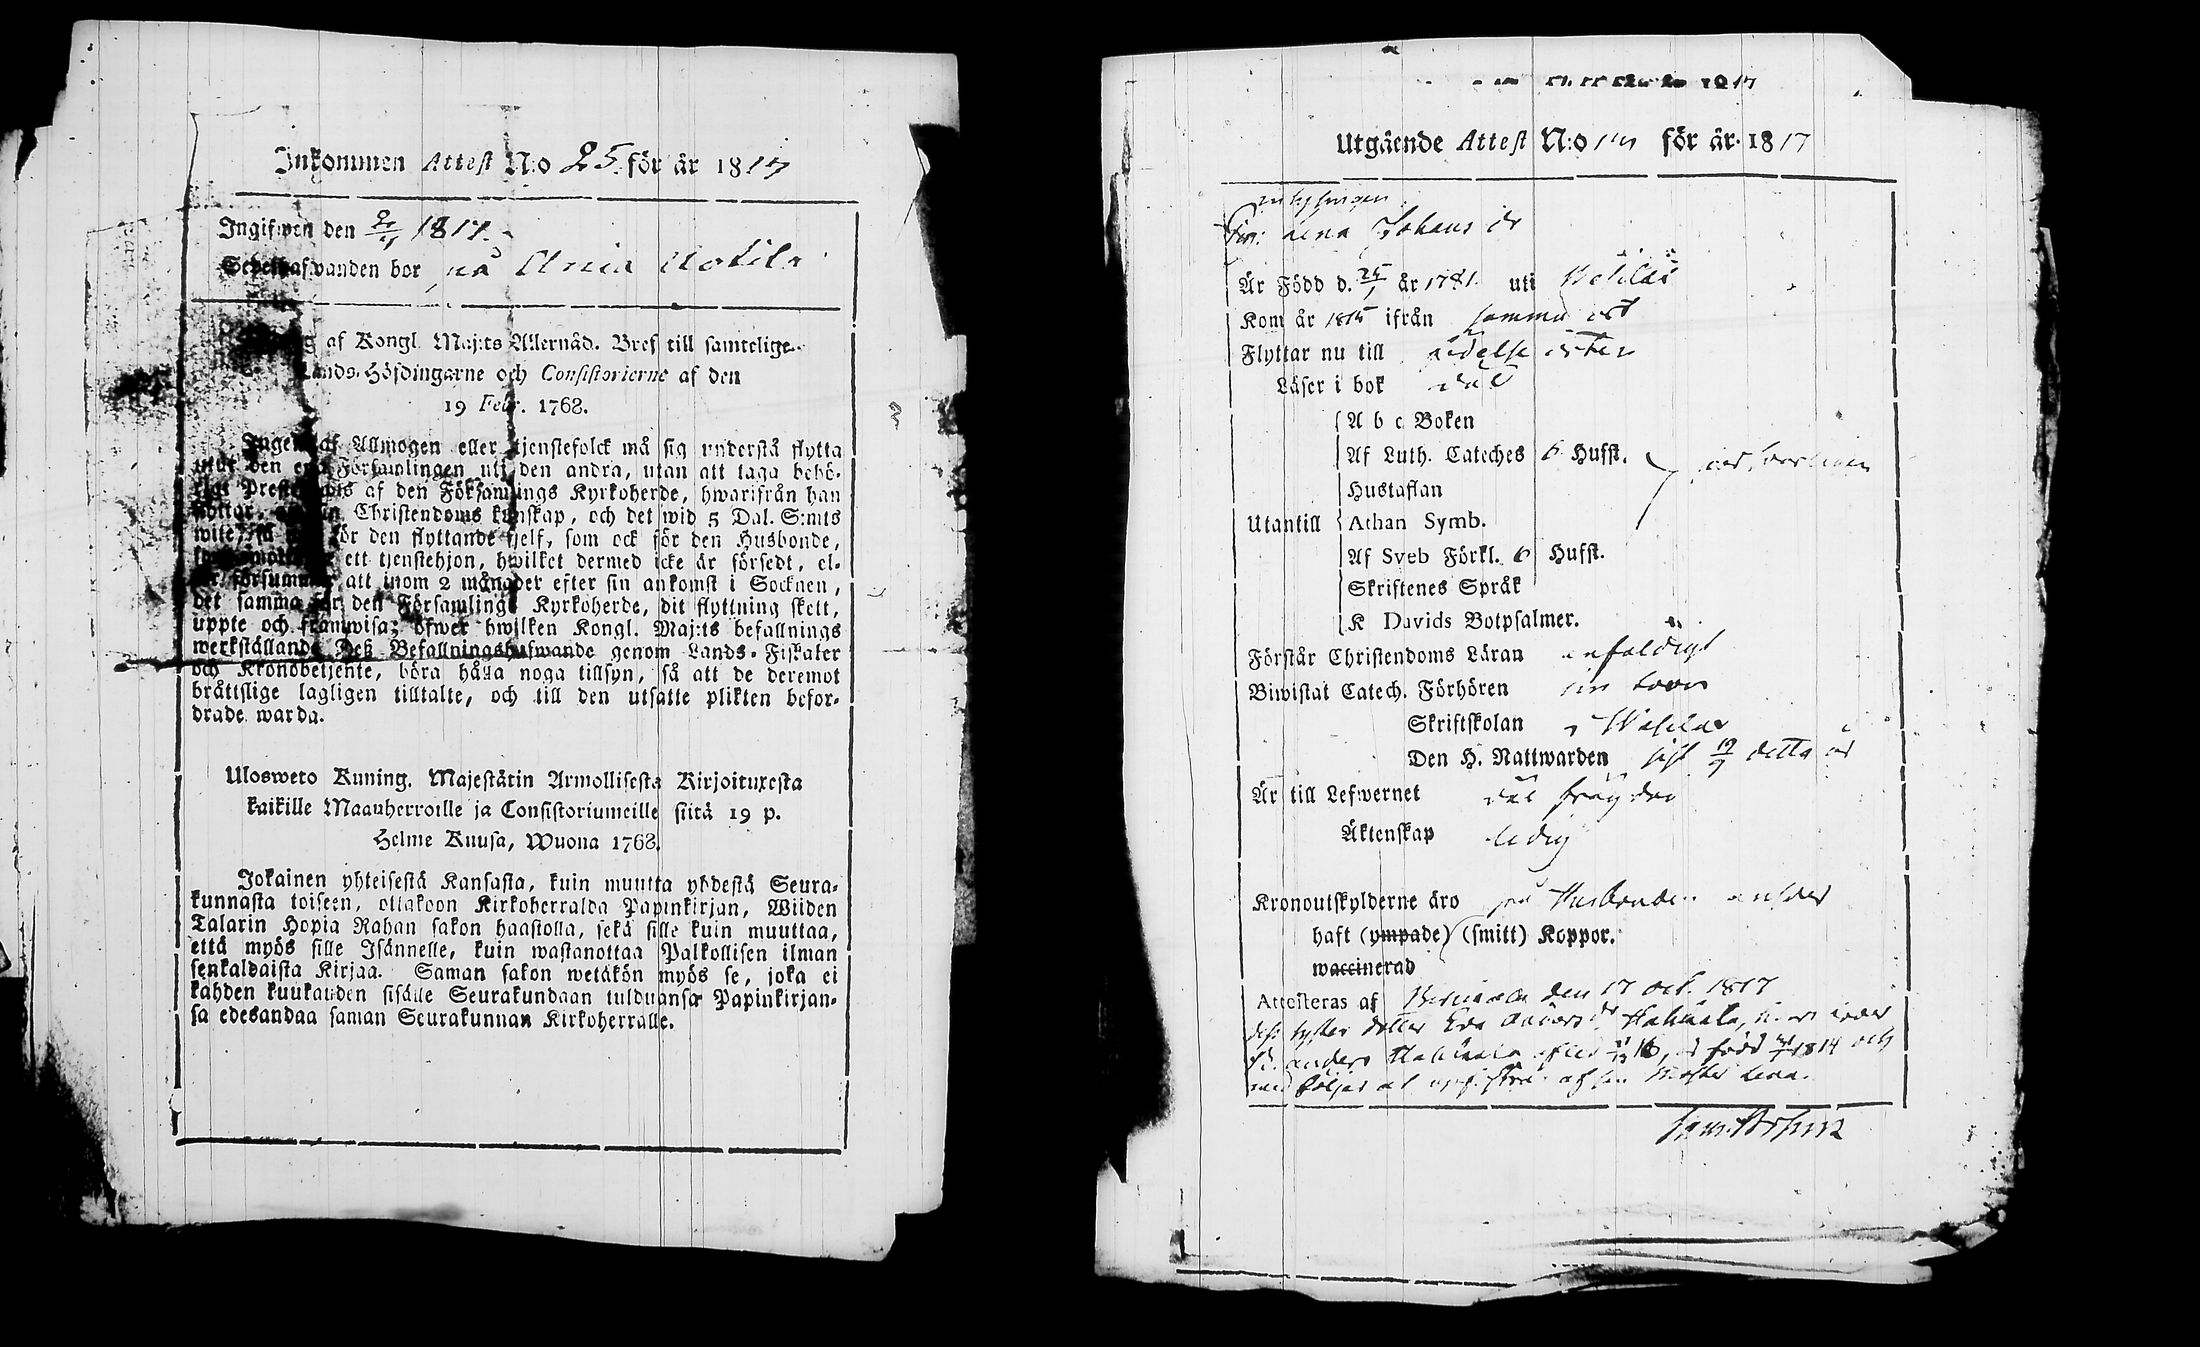 Inkommen Attest N:o 25. för år 1817
Ingifwen den 2/11 1817.
Sedelhafwanden bor på Ania
af Kongl. Maj:ts Allernåd. Bref till samtelige
Lands-Höfdingarne och Consistorierne af den
19 Febr. 1768.
Ingen af Allmogen eller tjenstefolck må sig understå flytta
utur den ena Församlingen uti den andra, utan att taga behö-
rigt Prestebewis af den Föksamlings Kyrkoherde, hwarifrån han
flyttar, om sin Christendoms kunskap, och det wid 5 Dal. S:mts
wite, så för den flyttande sjelf, som ock för den Husbonde,
som emottager ett tjenstehjon, hwilket dermed icke är försedt, el-
ler försummar att inom 2 månader efter sin ankomst i Socknen,
det samma för den Församlings Kyrkoherde, dit flyttning skett,
uppte och framwisa; öfwer hwilken Kongl. Maj:ts befallnings
werkställande Deß Befallningshafwande genom Lands-Fiskaler
och Kronobetjente, böra hålla noga tillsyn, så att de deremot
bråttslige lagligen tilltalte, och till den utsatte plikten befor-
drade warda.
Ulosweto Kuning. Majestätin Armollisesta Kirjoituxesta
kaikille Maanherroille ja Consistoriumeille siitä 19 p.
Helme Kuusa, Wuona 1768.
Jokainen yhteisestä Kansasta, kuin muutta yhdestä Seura-
kunnasta toiseen, ottakoon Kirkoherralda Papinkirjan, Wiiden
Talarin Hopia Rahan sakon haastolla, sekä sille kuin muuttaa,
että myös sille Isännelle, kuin wastanottaa Palkollisen ilman
senkaldaista Kirjaa. Saman sakon wetäkön myös se, joka ei
kahden kuukauden sisälle Seurakundaan tulduansa Papinkirjan-
sa edesandaa saman Seurakunnan Kirkoherralle.
Utgående Attest N:o för år 1817
inhysingen
Lena Johans dr
Är Född d. 25/1 år 1781. uti Wesilax
Kom år 1815 ifrån samma ort
Flyttar nu till födelse orten
Läser i bok väl
A b c Boken
Af Luth. Cateches 6 Hufst.
Hustaflan
Utantill Athan Symb.
Af Sveb Förkl. 6 Hufst.
Skriftenes Språk
K Davids Botpsalmer.
Förstår Christendoms Läran enfaldigt
Biwistat Catech. Förhören
Skriftskolan i Wesilax
Den H. Nattwarden sist 19/9 detta år
Är till Lefwernet väl frägdad
Äktenskap ledig
Kronoutskylderne äro Husbonden
haft (ympade) (smitt) Koppor.
waccinerad
Attesteras af den 17 oct. 1817
dess syster dotter Eva Anders dr
anders född 1814 och
med följer af sin Moster Lena.